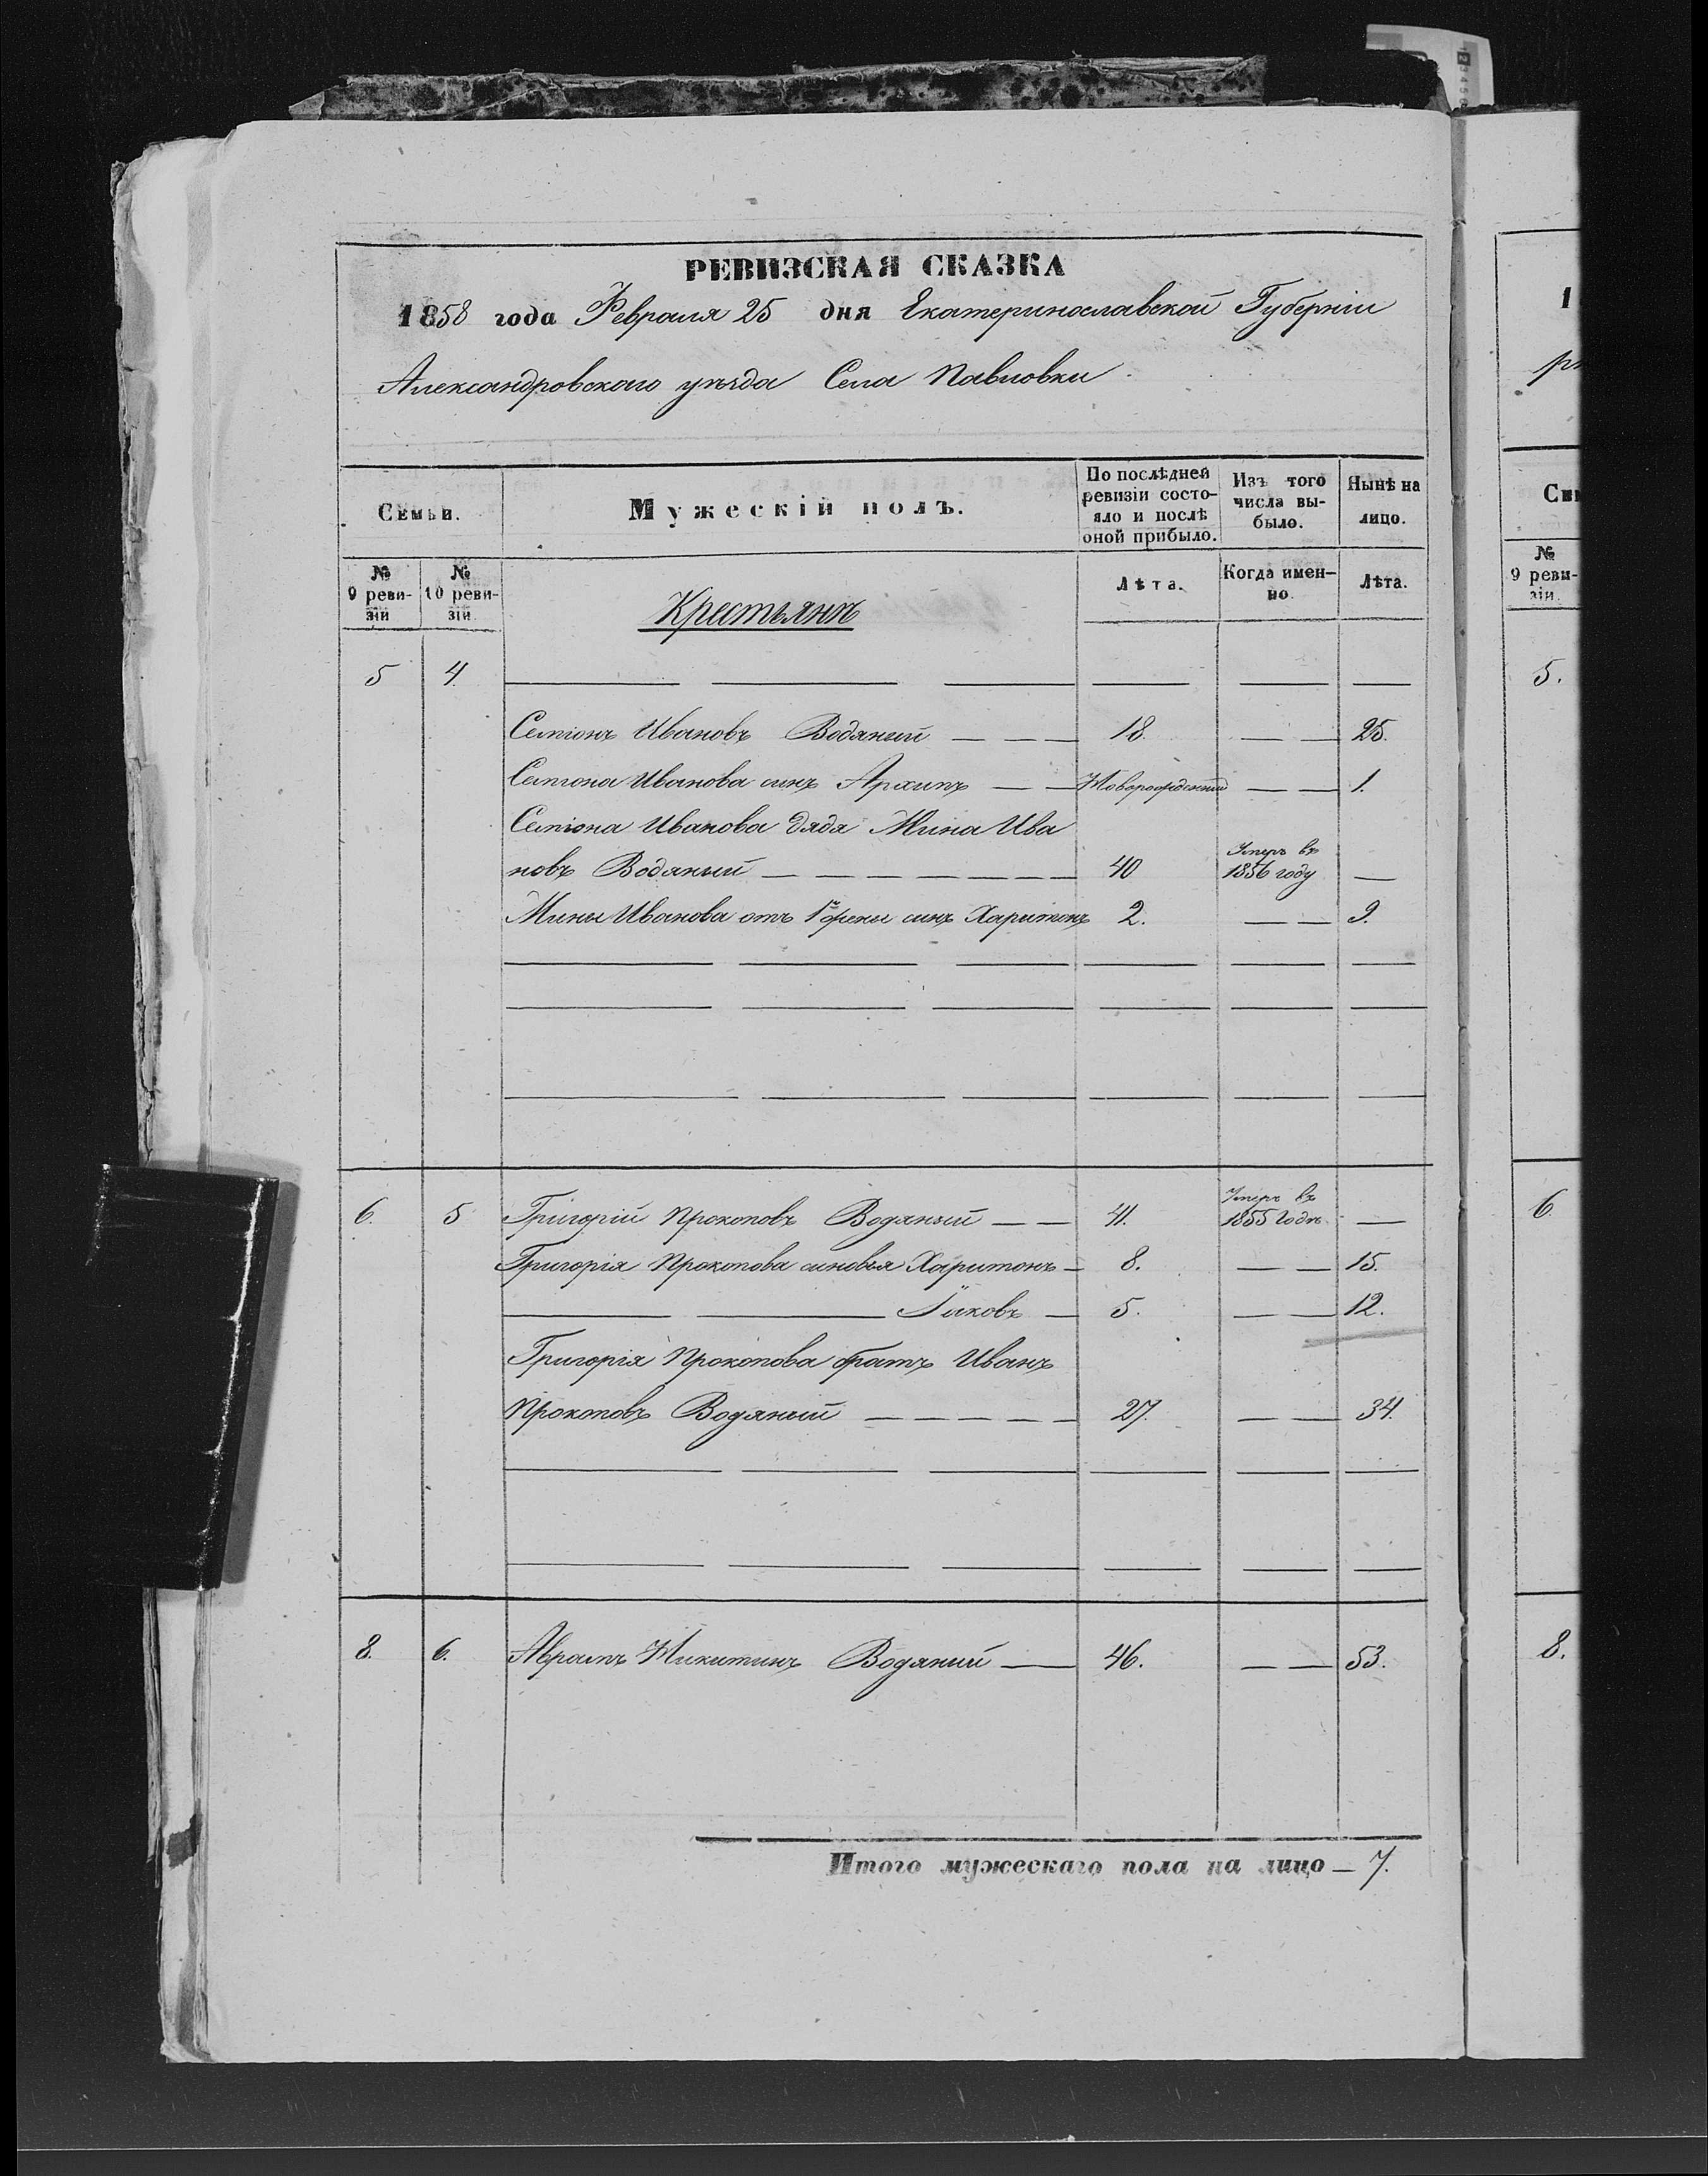 РЕВИЗСКАЯ СКАЗКА
1858 года Февраля 25 дня Екатеринославской Губерніи
Александровскаго уѣзда Села Павловки
Семьи.
Мужескій полъ.
По послѣдней ревизіи состояло и послѣ оной прибыло.
Изъ того числа выбыло.
Нынѣ на лицо.
№ 9 ревизіи
№ 10 ревизіи.
Крестьянѣ
Лѣта.
Когда именно.
Лѣта.
5 4.
Семіонъ Ивановъ Водяный 18. 25.
Семіона Иванова синъ Архипъ Новорожденный 1.
Семіона Иванова дядя Мина Ива
новъ Водяный 40 Умеръ въ 1856 году
Мины Иванова отъ 1й жены синъ Харитонъ 2. 9.
6. 5 Григорій Прокоповъ Водяный 41. Умеръ въ 1855 Годѣ
Григорія Прокопова синовья Харитонъ 8. 15.
Іаковъ 5. 12.
Григорія Прокопова братъ Иванъ
Прокоповъ Водяный 27. 34.
8. 6. Аврамъ Никитинъ Водяный 46. 53.
Итого мужескаго пола на лицо 7.
1
Сем
№ 9 реви-
зіи.
5.
6
8.